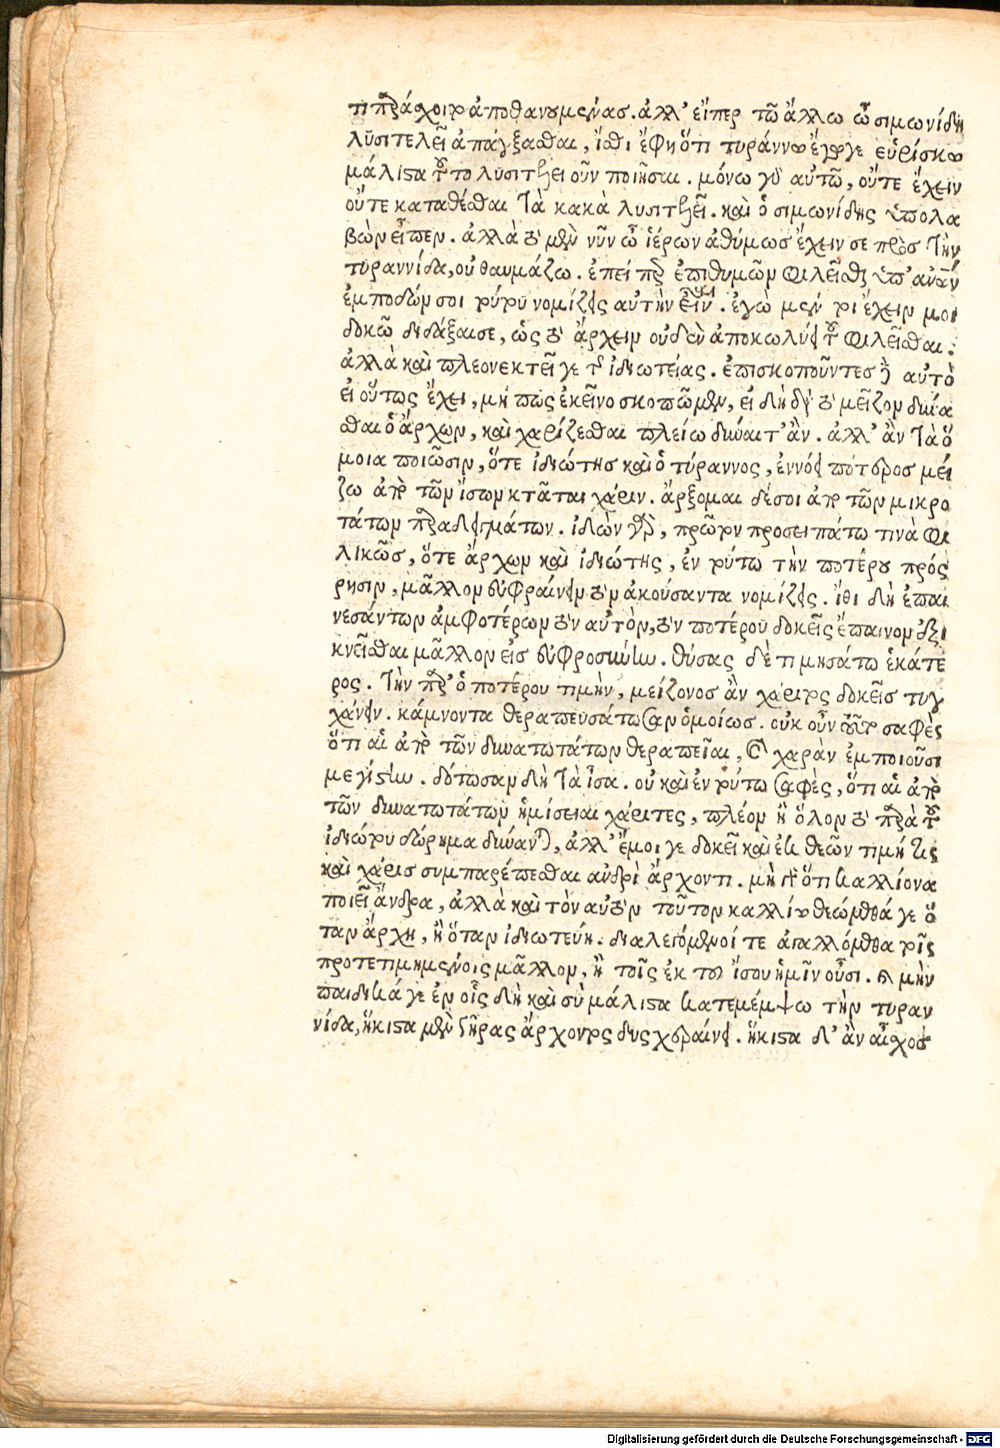 τι παράσχοι ἀποθανουμένας. ἀλλ' εἴπερ τῶ ἄλλω ὦ σιμωνίδη
λυσιτελεῖ ἀπάγξασθαι, ἴσθι ἔφη ὅτι τυράννω ἔγωγε εὑρίσκω
μάλιστα τοῦτο λυσιτελεῖ οῦν ποιῆσαι. μόνω γὰρ αὐτῶ, οὔτε ἔχειν
οὔτε καταθέσθαι τὰ κακὰ λυσιτελεῖ. καὶ ὁ σιμωνίδης ὑπολα
βὼν εἶπεν. ἀλλὰ τὸ μὲν νῦν ὦ ἱέρων ἀθύμως ἔχειν σε πρὸς τὴν
τυραννίδα, οὐ θαυμάζω. ἐπεί περ ἐπιθυμῶν φιλεῖσθαι ὑπ' ἀνθρώπων
ἐμποδών σοι τούτου νομίζεις αὐτὴν εἶναι. ἐγὼ μέν τοι ἔχειν μοι
δοκῶ διδάξαι σε, ὡς τὸ ἄρχειν οὐδὲν ἀποκωλύει τοῦ φιλεῖσθαι.
ἀλλὰ καὶ πλεονεκτεῖ γε τῆς ἰδιωτείας. ἐπισκοποῦντες δὲ αὐτὸ
εἰ οὕτως ἔχει, μή πως ἐκεῖνο σκοπῶμεν, εἰ διὰ τὸ μεῖζον δύνα
σθαι ὁ ἄρχων, καὶ χαρίζεσθαι πλείω δύναιτ' ἂν. ἀλλ' ἂν τὰ ὅ
μοια ποιῶσιν, ὅτε ἰδιώτης καὶ ὁ τύραννος, ἐννόει πότερος μεί
ζω ἀπὸ τῶν ἴσων κτᾶται χάριν. ἄρξομαι δέ σοι ἀπὸ τῶν μικρο
τάτων παραδειγμάτων. ἰδὼν γὰρ, πρῶτον προσειπάτω τινὰ φι
λικῶς, ὅτε ἄρχων καὶ ἰδιώτης, ἐν τούτω τὴν ποτέρου πρός
ρησιν, μᾶλλον εὐφραίνειν τὸν ἀκούσαντα νομίζεις. ἴθι δὴ ἐπαι
νεσάντων ἀμφοτέρων τὸν αὐτὸν, τὸν ποτέρου δοκεῖς ἔπαινον ἐξι
κνεῖσθαι μᾶλλον εἰς εὐφροσύνην. θύσας δὲ τιμησάτω ἑκάτε
ρος. τὴν παρ' ὁποτέρου τιμὴν, μείζονος ἂν χάριτος δοκεῖς τυγ
χάνειν. κάμνοντα θεραπευσάτωσαν ὁμοίως. οὐκ οῦν τοῦτο σαφὲς
ὅτι αἱ ἀπὸ τῶν δυνατωτάτων θεραπεῖαι, καὶ χαρὰν ἐμποιοῦσι
μεγίστην. δότωσαν δὴ τὰ ἶσα. οὐ καὶ ἐν τούτω σαφὲς, ὅτι αἱ ἀπὸ
τῶν δυνατωτάτων ἡμίσειαι χάριτες, πλέον ἢ ὅλον τὸ παρὰ τοῦ
ἰδιώτου δώρημα δύνανται, ἀλλ' ἔμοι γε δοκεῖ καὶ ἐκ θεῶν τιμή τις
καὶ χάρις συμπαρέπεσθαι ἀνδρὶ ἄρχοντι. μὴ γὰρ ὅτι καλλίονα
ποιεῖ ἄνδρα, ἀλλὰ καὶ τὸν αὐτὸν τοῦτον καλλίω θεώμεθά γε ὅ
ταν ἄρχη, ἢ ὅταν ἰδιωτεύη. διαλεγόμενοί τε ἀγαλλόμεθα τοῖς
προτετιμημένοις μᾶλλον, ἢ τοῖς ἐκ τοῦ ἴσου ἡμῖν οὖσι. καὶ μὴν
παιδικά γε ἐν οἷς δὴ καὶ σὺ μάλιστα κατεμέμψω τὴν τυραν
νίδα, ἥκιστα μὲν γῆρας ἄρχοντος δυσχεραίνει. ἥκιστα δ' ἂν αἶσχος